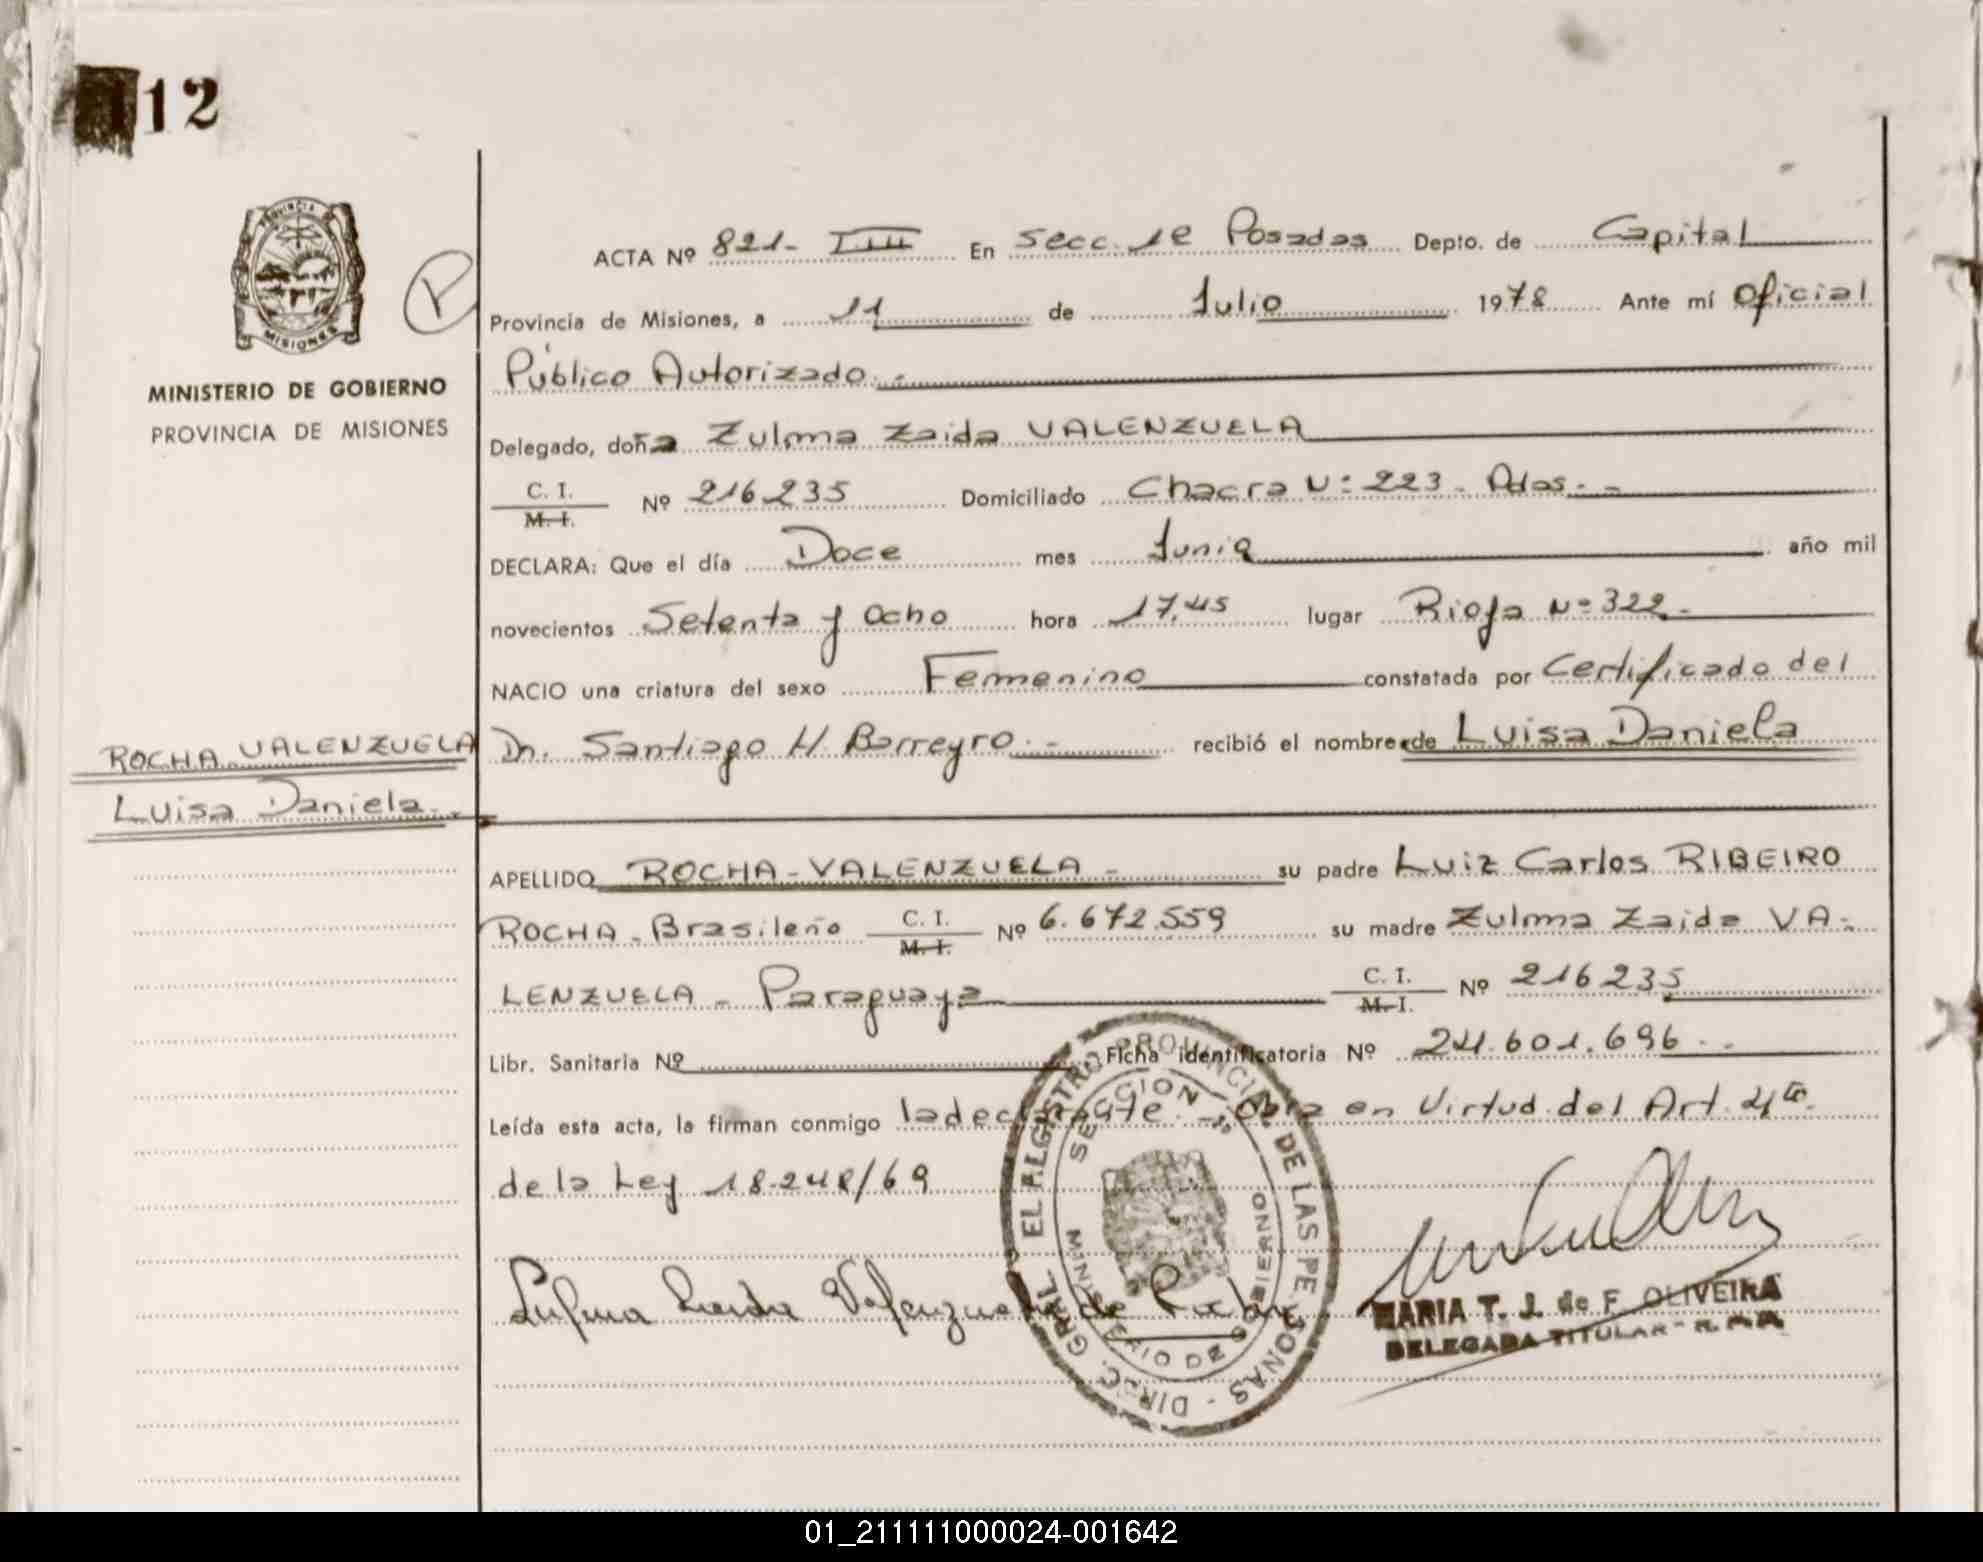 112
PROVINCIA DE
MISIONES
MINISTERIO DE GOBIERNO
PROVINCIA DE MISIONES
P
ROCHA VALENZUELA
Luisa Daniela.-
ACTA Nº 821- T.III En Secc. 1e Posadas Depto. de Capital
Provincia de Misiones, a 11 de Julio 1978 Ante mí Oficial
Público Autorizado.-
Delegado, doña Zulma Zaida VALENZUELA
C. I.
M. I. Nº 216.235 Domiciliado Chacra Nº 223 - Pdas.-
DECLARA: Que el día Doce mes Junio año mil
novecientos Setenta y Ocho hora 17,45 lugar Rioja Nº 322-
NACIO una criatura del sexo Femenino constatada por Certificado del
Dr. Santiago H. Barreyro.- recibió el nombre de Luisa Daniela
APELLIDO ROCHA-VALENZUELA- su padre Luiz Carlos RIBEIRO
ROCHA - Brasileño C. I. M. I. Nº 6.672.559 su madre Zulma Zaida VA-
LENZUELA - Paraguaya C. I. M. I. Nº 216235
Libr. Sanitaria Nº Ficha identificatoria Nº 24.601.696.-
Leída esta acta, la firman conmigo la declarante.- Obra en Virtud del Art. 4to
de la Ley 18.248/69
Zulma Zaida Valenzuela de
DIREC. GRAL. EL REGISTRO PROVINCIAL DE LAS PERSONAS
SECCION 1º
MINISTERIO DE GOBIERNO
MARIA T. J. de F. OLIVEIRA
DELEGADA TITULAR
01_211111000024-001642